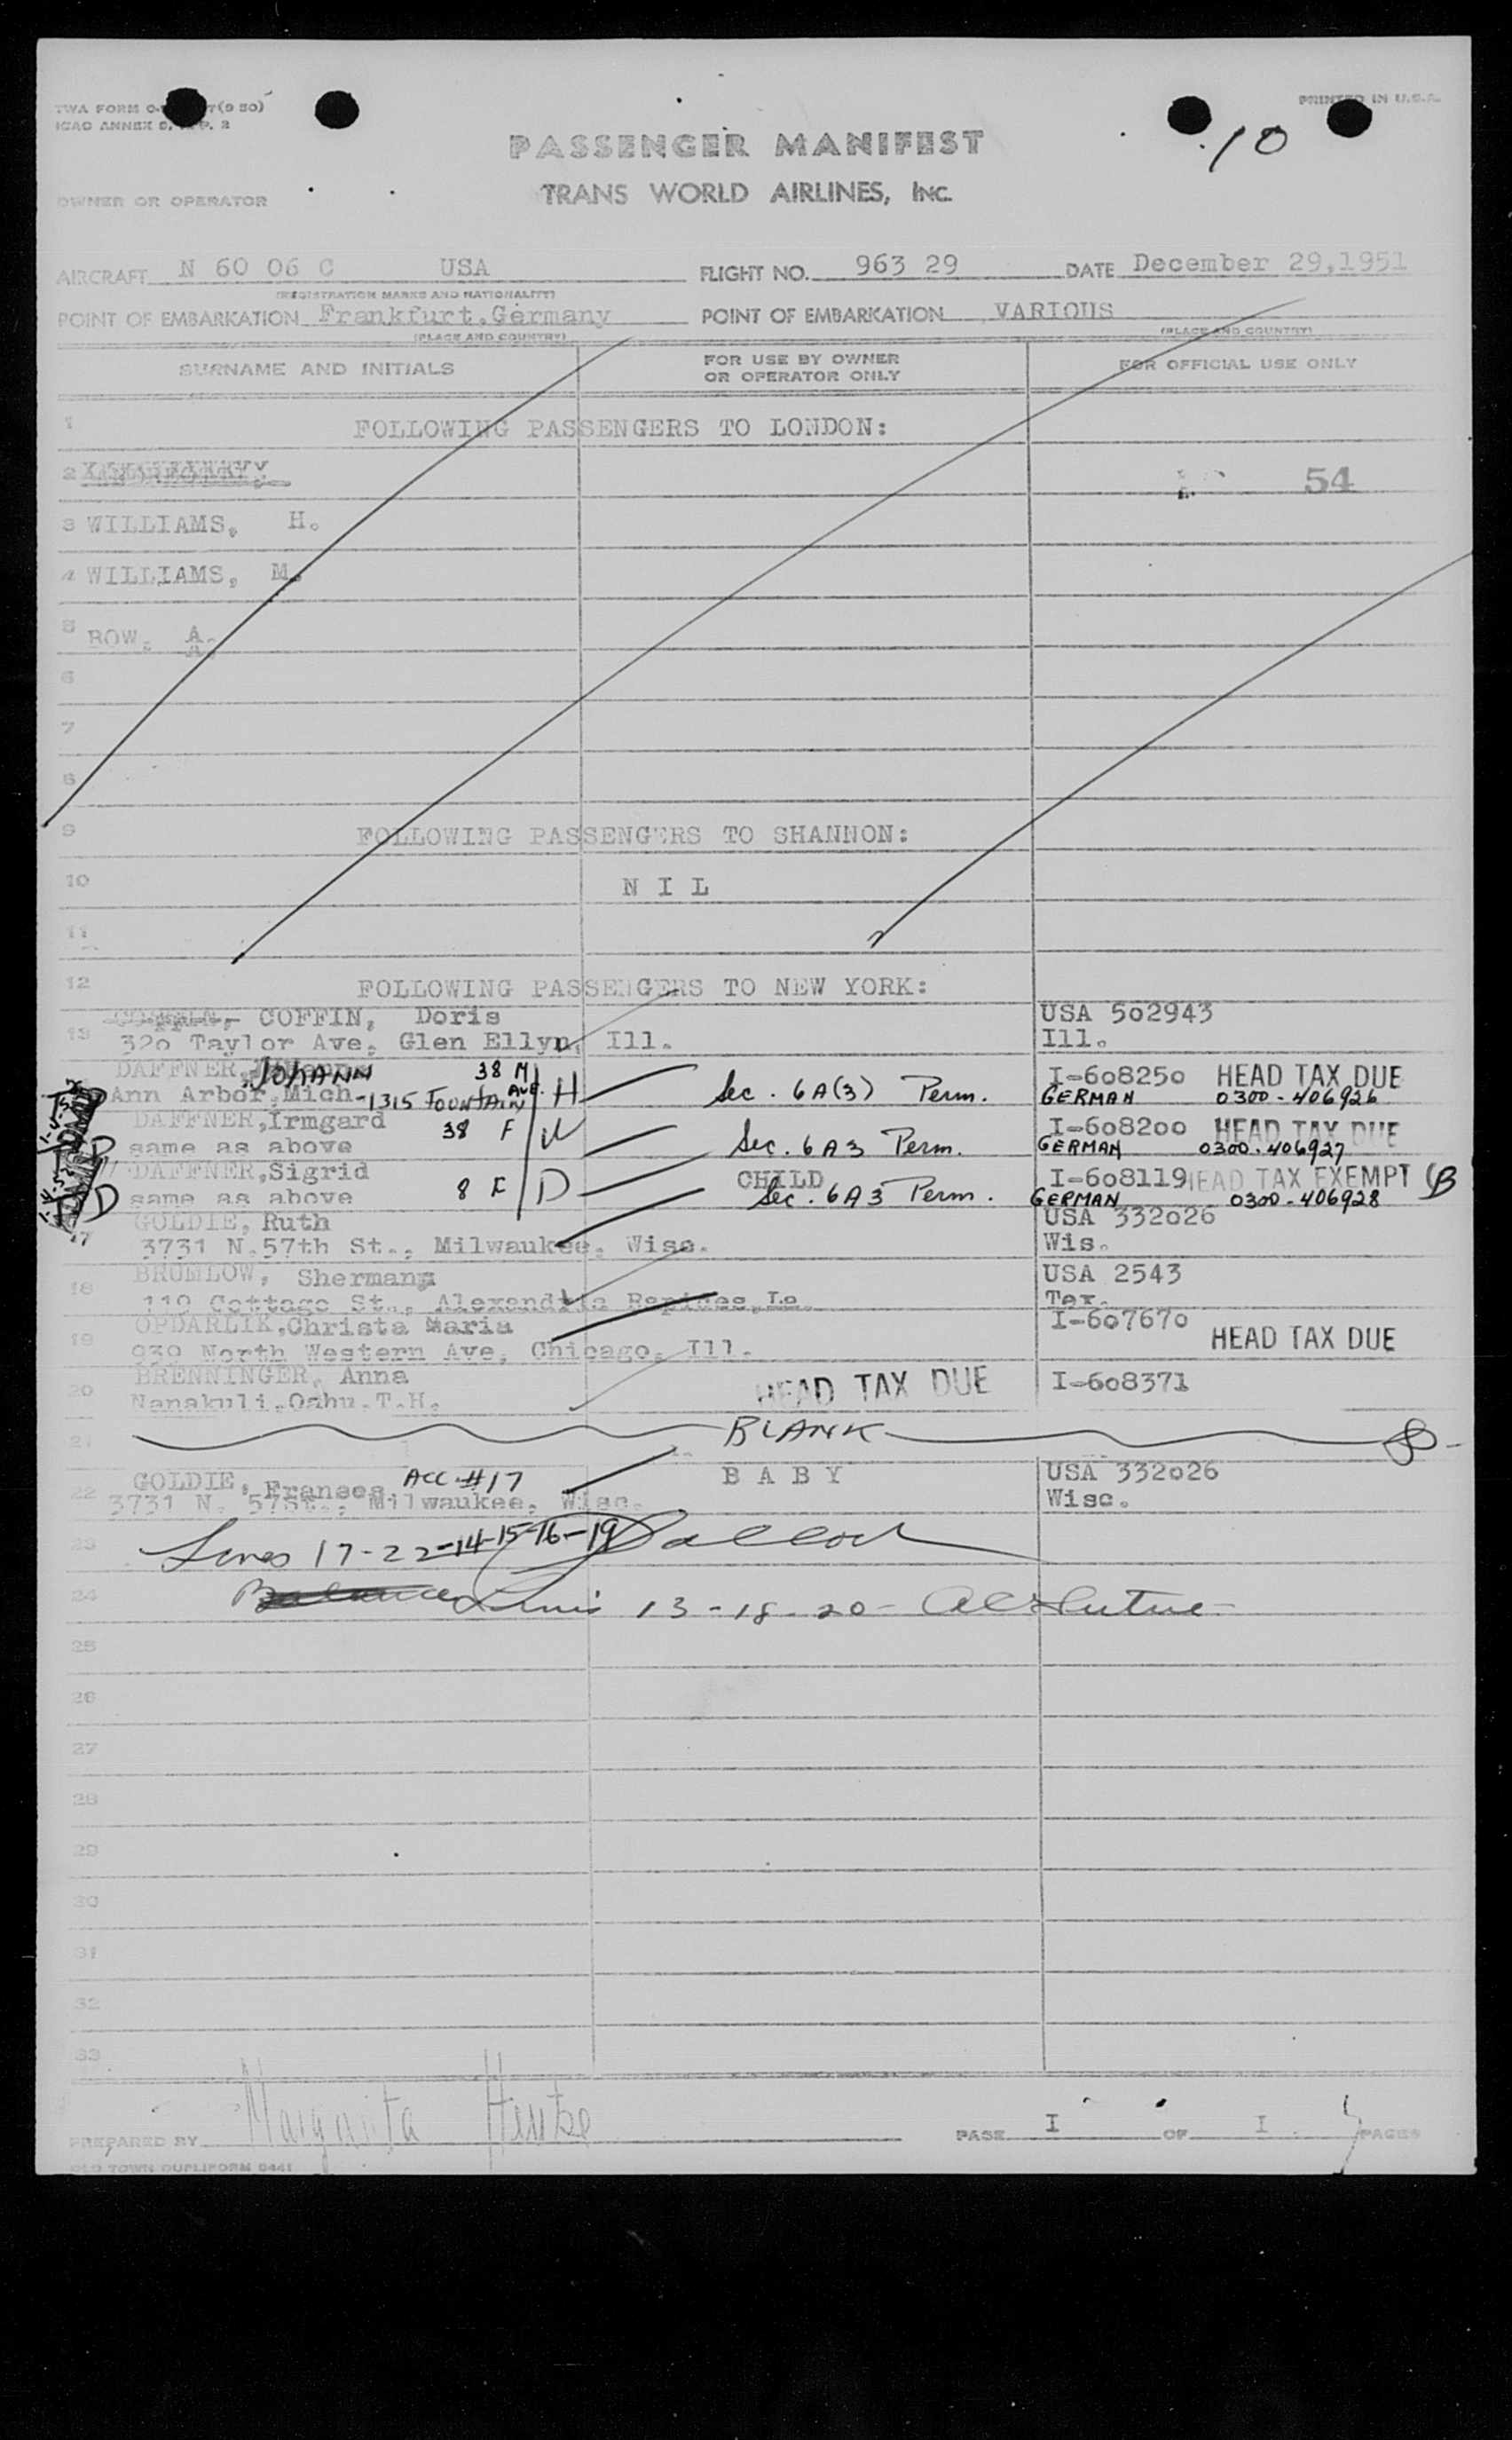 TWA FORM
PRINTED IN U.S.A.
ICAO ANNEX
10
PASSENGER MANIFEST
TRANS WORLD AIRLINES, INC.
OWNER OR OPERATOR
AIRCRAFT N 60 06 C USA FLIGHT NO. 963 29 DATE December 29,1951
(REGISTRATION MARKS AND NATIONALITY)
POINT OF EMBARKATION Frankfurt,Germany POINT OF EMBARKATION VARIOUS
(PLACE AND COUNTRY) (PLACE AND COUNTRY)
SURNAME AND INITIALS FOR USE BY OWNER OR OPERATOR ONLY FOR OFFICIAL USE ONLY
1 FOLLOWING PASSENGERS TO LONDON:
2 54
3 WILLIAMS, H.
4 WILLIAMS, M.
5 ROW, A.
6
7
8
9 FOLLOWING PASSENGERS TO SHANNON:
10 N I L
11
12 FOLLOWING PASSENGERS TO NEW YORK:
13 COFFIN, Doris USA 502943
320 Taylor Ave, Glen Ellyn, Ill. Ill.
DAFFNER, JOHANN 38 M I-608250 HEAD TAX DUE
Ann Arbor,Mich-1315 FOUNTAIN AVE. H Sec. 6A(3) Perm. GERMAN 0300-406926
DAFFNER,Irmgard 38 F W I-608200 HEAD TAX DUE
same as above Sec. 6A3 Perm. GERMAN 0300-406927
DAFFNER,Sigrid CHILD I-608119 HEAD TAX EXEMPT
same as above 8 F D Sec. 6A3 Perm. GERMAN 0300-406928
GOLDIE, Ruth USA 332026
17 3731 N.57th St., Milwaukee, Wisc. Wis.
BRUMLOW, Sherman USA 2543
18 119 Cottage St., Alexandria Rapides,La. Tex.
OPDARLIK,Christa Maria I-607670
19 939 North Western Ave, Chicago, Ill. HEAD TAX DUE
BRENNINGER, Anna HEAD TAX DUE I-608371
20 Nanakuli,Oahu.T.H.
21 BLANK
GOLDIE, Franses ACC #17 B A B Y USA 332026
22 3731 N. 57St., Milwaukee, Wisc. Wisc.
23 Lines 17-22-14-15-16-19
24 Lines 13-18-20-
25
26
27
28
29
30
31
32
33
PREPARED BY Margarita PAGE I OF I PAGES
OLD TOWN DUPLIFORM 8441